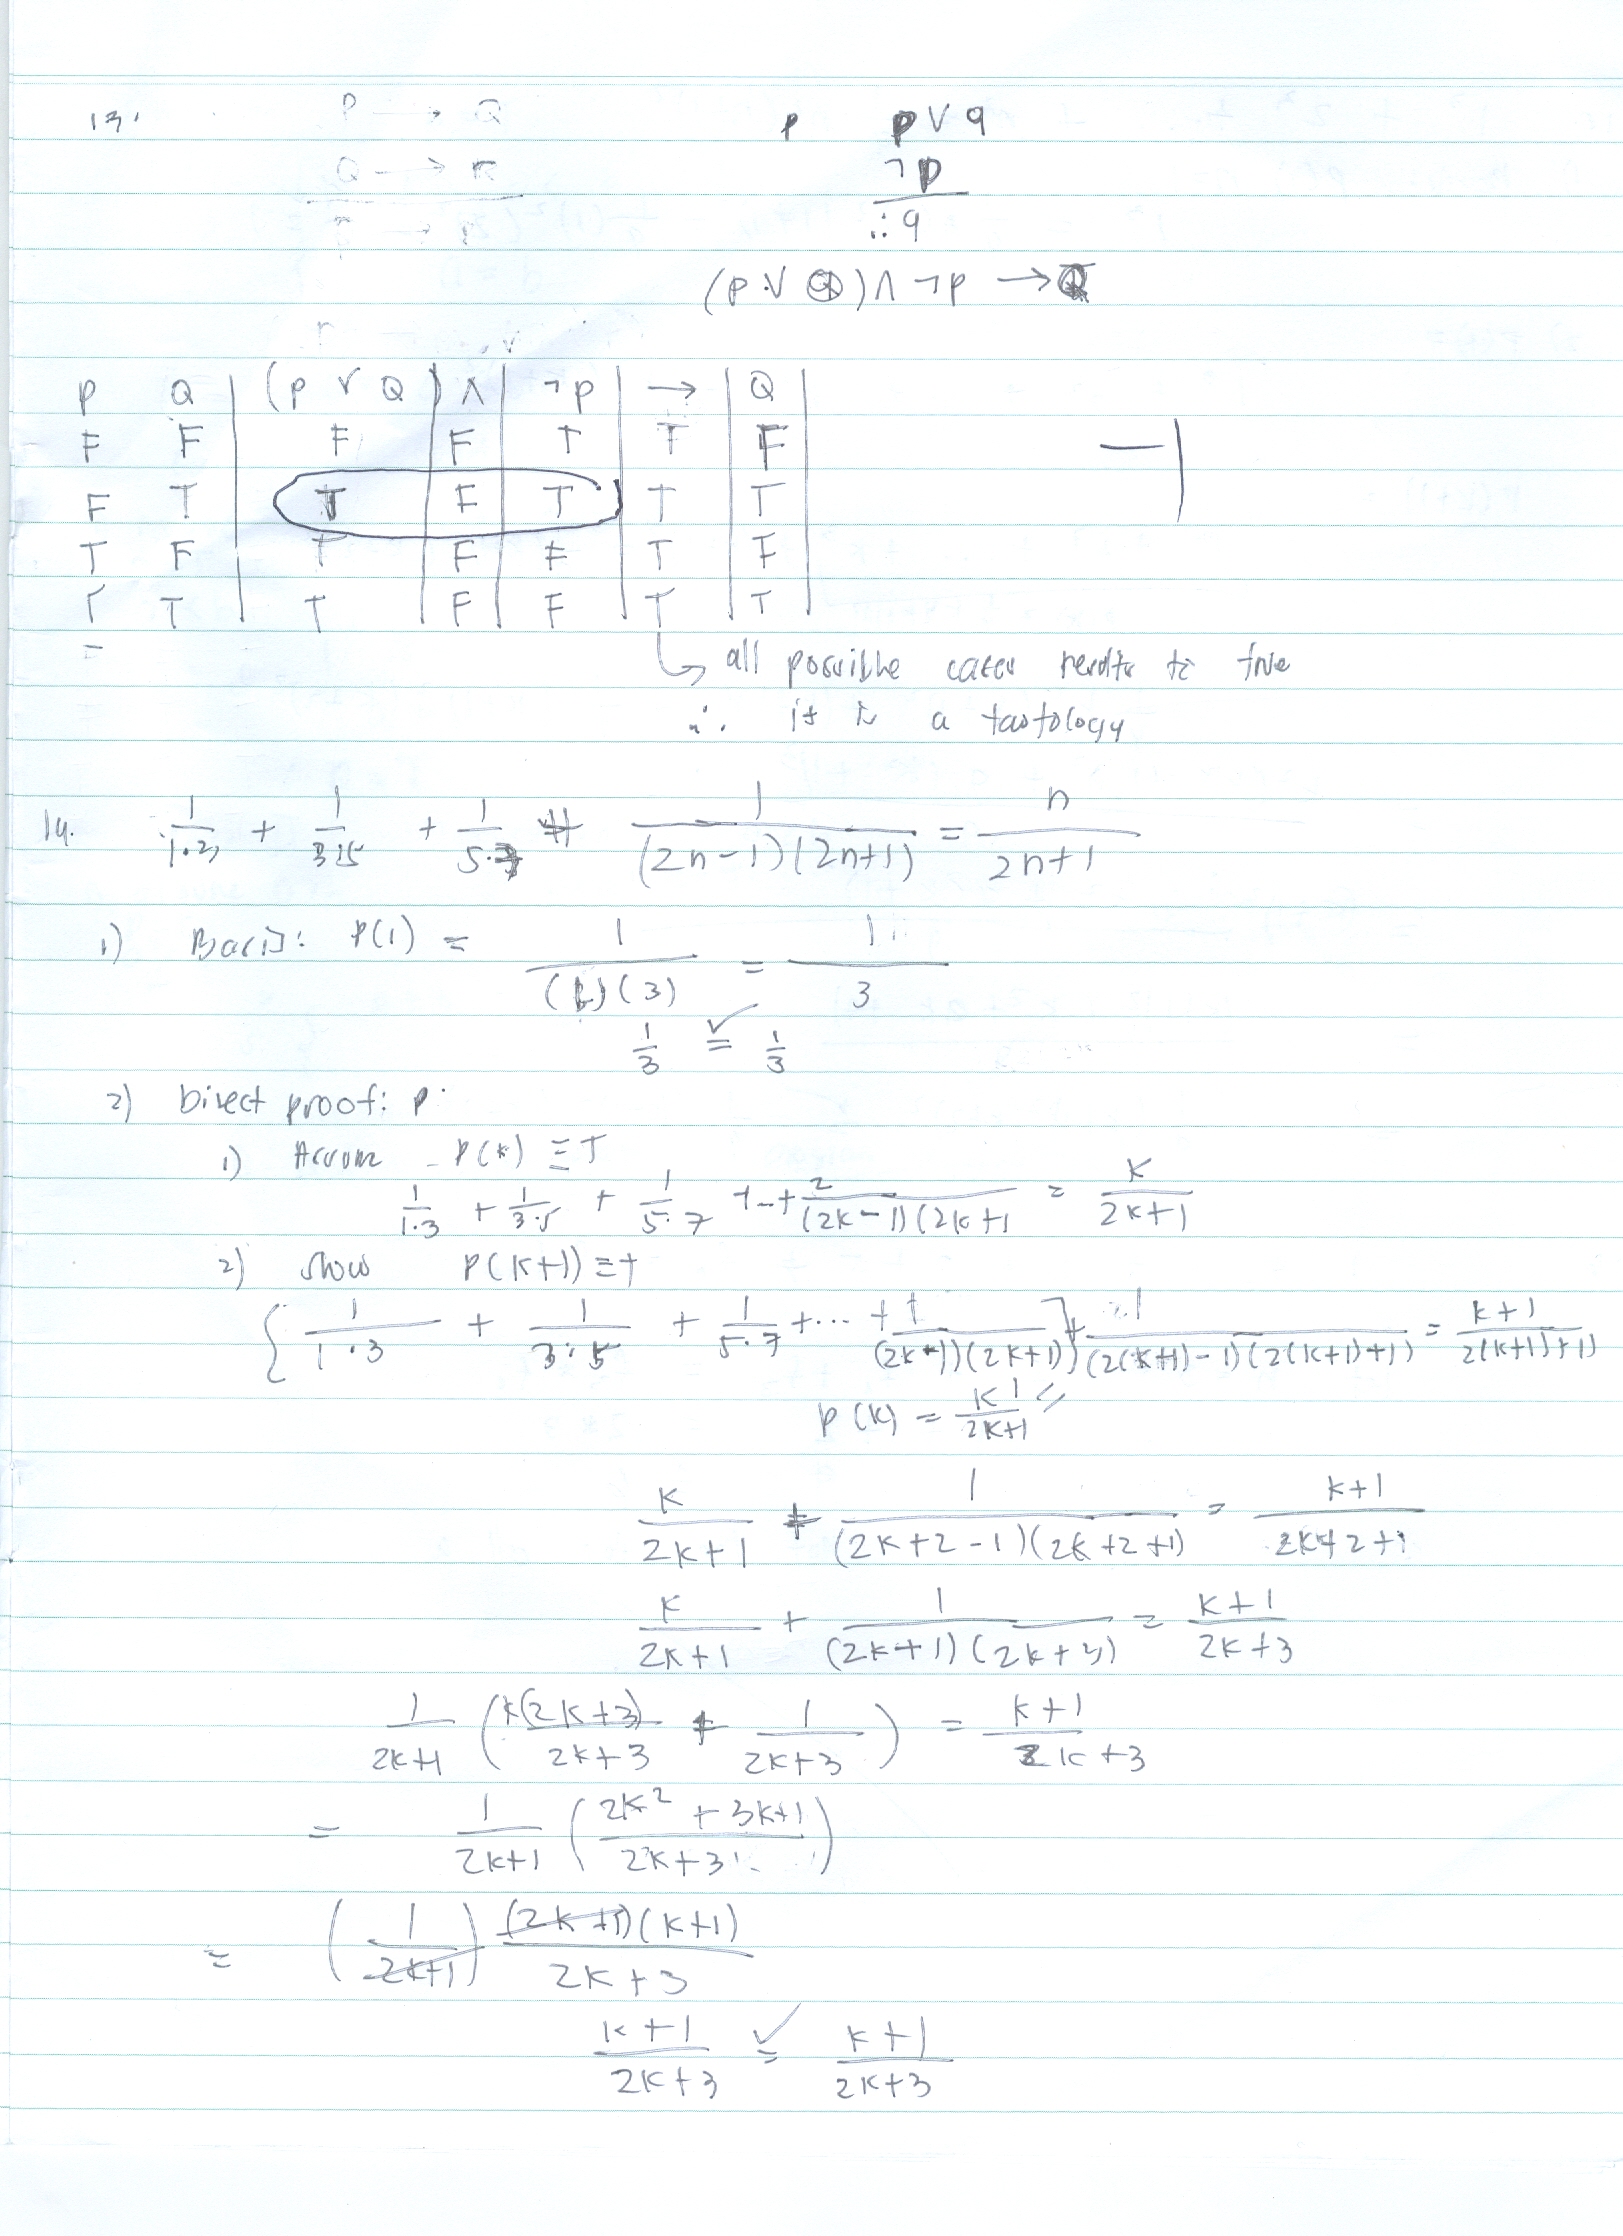 13.
P → Q
Q → R
p p ∨ q
¬p
∴ q
(P ∨ Q) ∧ ¬P → Q
P Q | (P ∨ Q) | ∧ | ¬P | → | Q |
F F | F | F | T | T | F |
F T | T | F | T | T | T |
T F | T | F | F | T | F |
T T | T | F | F | T | T |
-1
↳ all possible cases results to true
∴ it is a tautology
14. 1/(1·3) + 1/(3·5) + 1/(5·7) + 1/((2n-1)(2n+1)) = n/(2n+1)
1) Basis: P(1) = 1/((1)(3)) = 1/3
1/3 = ✓ 1/3
2) Direct proof: p
1) Assume P(k) ≡ T
1/(1·3) + 1/(3·5) + 1/(5·7) + - + 2/((2k-1)(2k+1 = k/(2k+1)
2) show P(k+1) ≡ T
{ 1/(1·3) + 1/(3·5) + 1/(5·7) + ... + 1/((2k-1)(2k+1)) } + 1/((2(k+1)-1)(2(k+1)+1)) = (k+1)/(2(k+1)+1)
P(k) = k/(2k+1)
k/(2k+1) + 1/((2k+2-1)(2k+2+1)) = (k+1)/(2k+2+1)
k/(2k+1) + 1/((2k+1)(2k+3)) = (k+1)/(2k+3)
1/(2k+1) (k(2k+3)/(2k+3) + 1/(2k+3)) = (k+1)/(2k+3)
= 1/(2k+1) ((2k² + 3k+1)/(2k+3))
= (1/(2k+1)) (2k+1)(k+1)/(2k+3)
(k+1)/(2k+3) = ✓ (k+1)/(2k+3)